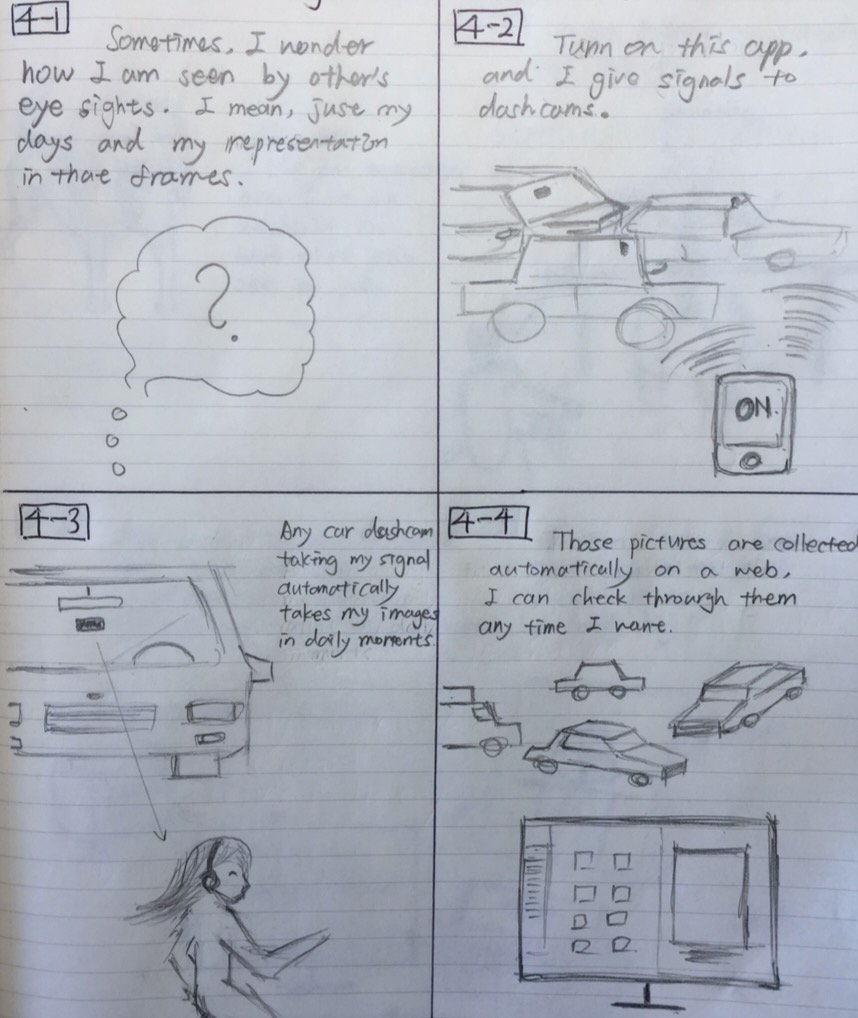 4-1
Sometimes, I wonder
how I am seen by other's
eye sights. I mean, just my
days and my representation
in that frames.
?
4-2
Turn on this app,
and I give signals to
dashcams.
ON.
4-3
Any car dashcam
taking my signal
automatically
takes my images
in daily moments.
4-4
Those pictures are collected
automatically on a web,
I can check through them
any time I want.